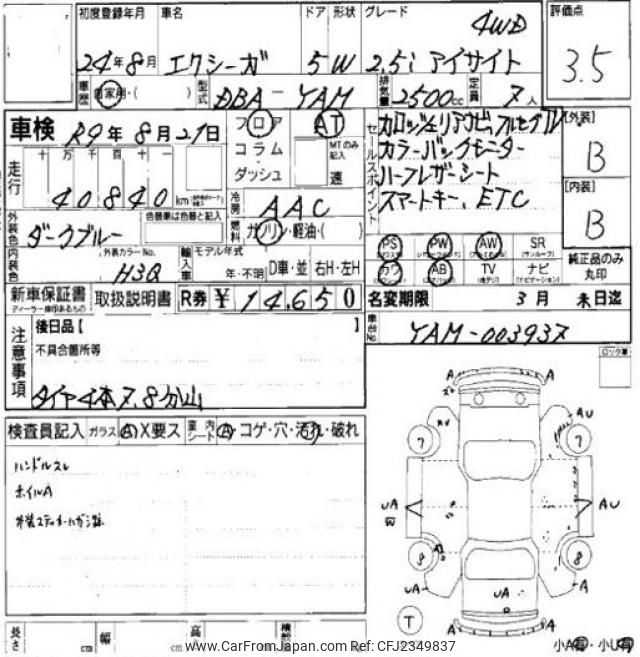 初度登録年月 車名 ドア 形状 グレード 4WD 評価点
24年8月 エクシーガ 5W 2.5i アイサイト 3.5
車歴 自家用・( ) 型式 DBA-YAM 排気量 2500cc 定員 7人
車検 R9年8月27日 フロア AT セールスポイント カロッツェリアナビ、フルセグTV [外装]
コラム MTのみ記入 カラーバックモニター B
ダッシュ 速 ハーフレザーシート
走行 十万千百十一 40840km 冷房 AAC スマートキー、ETC [内装]
外装色 ダークブルー 色替車は色替と記入 燃料 ガソリン・軽油・( ) B
内装色 外装カラーNo. H3Q 輸入車 モデル年式 PS PW AW SR
年・不明 D車・並 右H・左H カワ AB TV ナビ 純正品のみ丸印
新車保証書 取扱説明書 R券 ¥14,650 名変期限 3月 末日迄
ディーラー捺印あるもの
後日品【 】 車台No YAM-003937
注意事項 不具合箇所等 ロック車
タイヤ4本7.8分山
検査員記入 ガラス A X要ス 室内シート A・コゲ・穴・汚れ・破れ
ハンドルスレ
ホイルA
A A
AU
7 7
UA AU
9 8
UA A
UA
T A A
長さ cm 幅 cm 高
小A有・小U有
www.CarFromJapan.com Ref: CFJ2349837